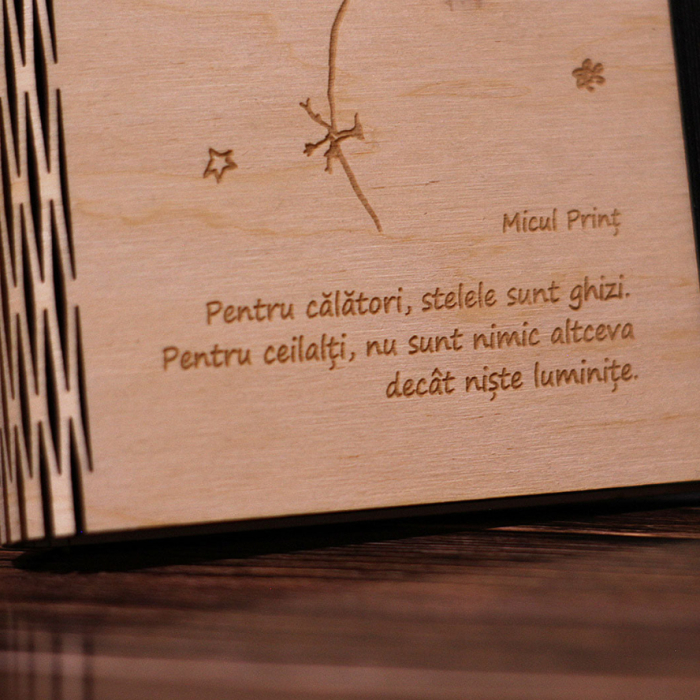 Micul Prinț
Pentru călători, stelele sunt ghizi.
Pentru ceilalți, nu sunt nimic altceva
decât niște luminițe.